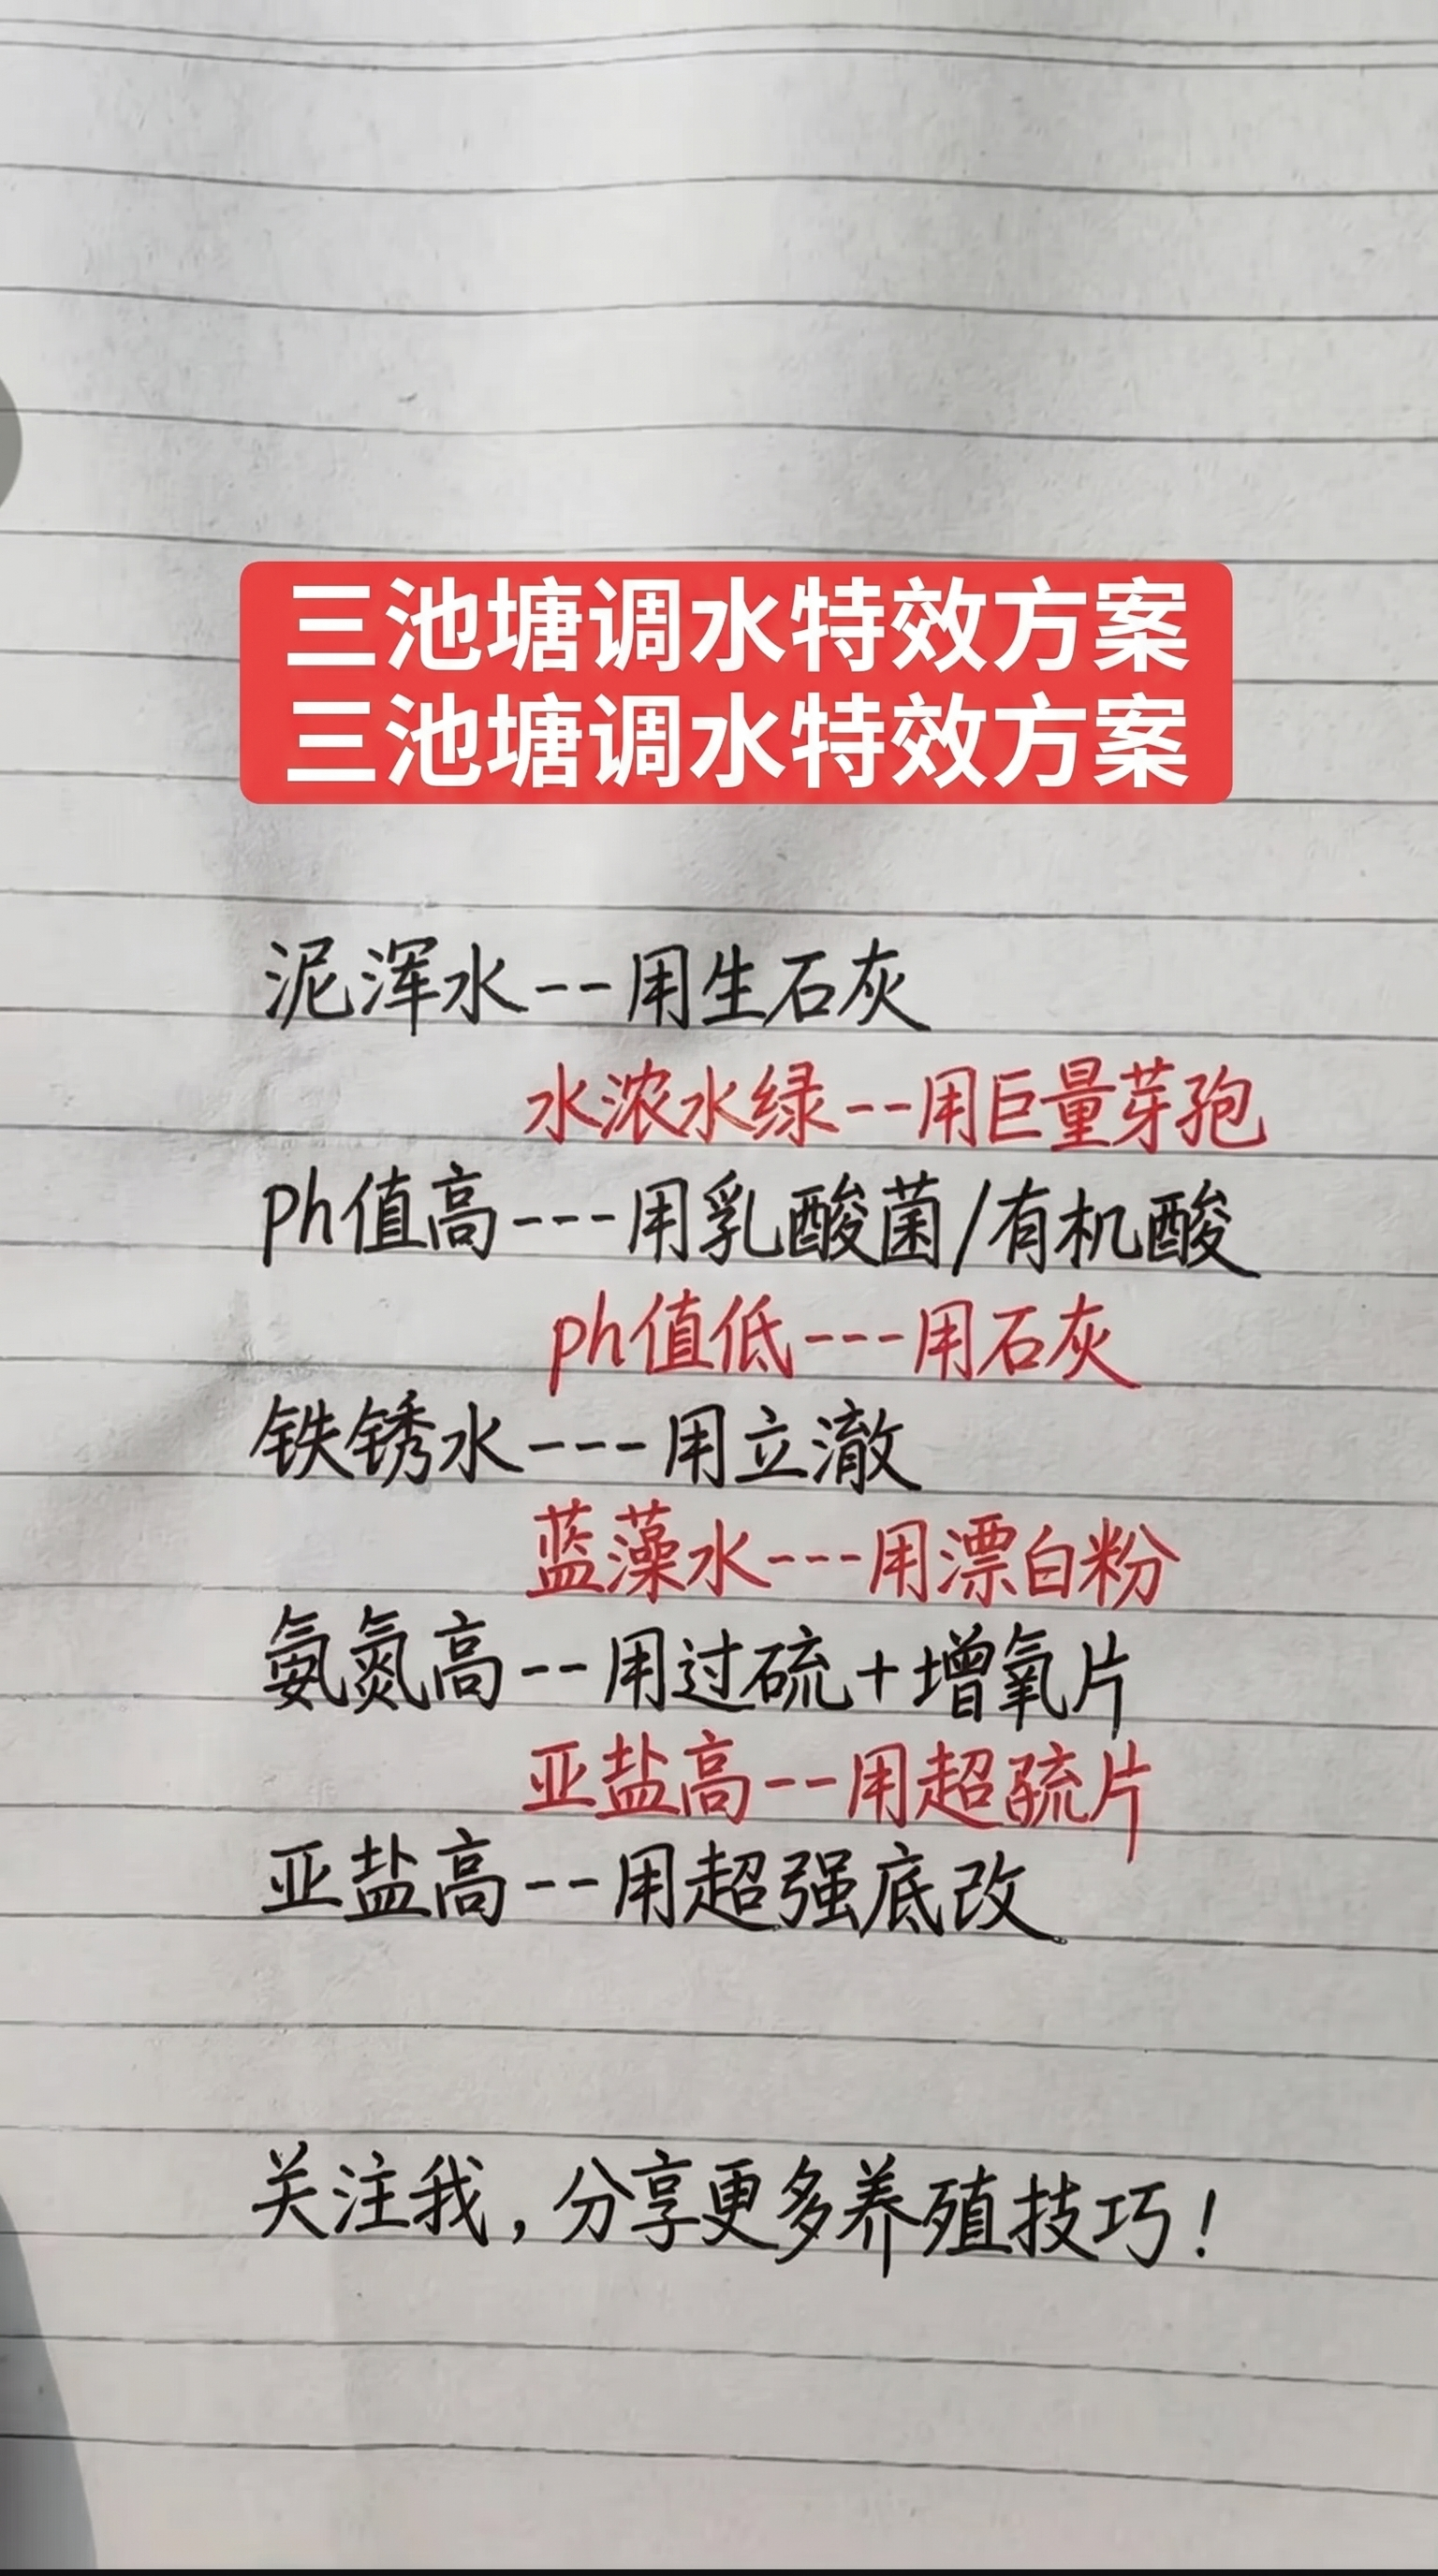 三池塘调水特效方案
三池塘调水特效方案
泥浑水--用生石灰
水浓水绿--用巨量芽孢
ph值高---用乳酸菌/有机酸
ph值低---用石灰
铁锈水---用立澈
蓝藻水---用漂白粉
氨氮高--用过硫+增氧片
亚盐高--用超片
亚盐高--用超强底改
关注我，分享更多养殖技巧！